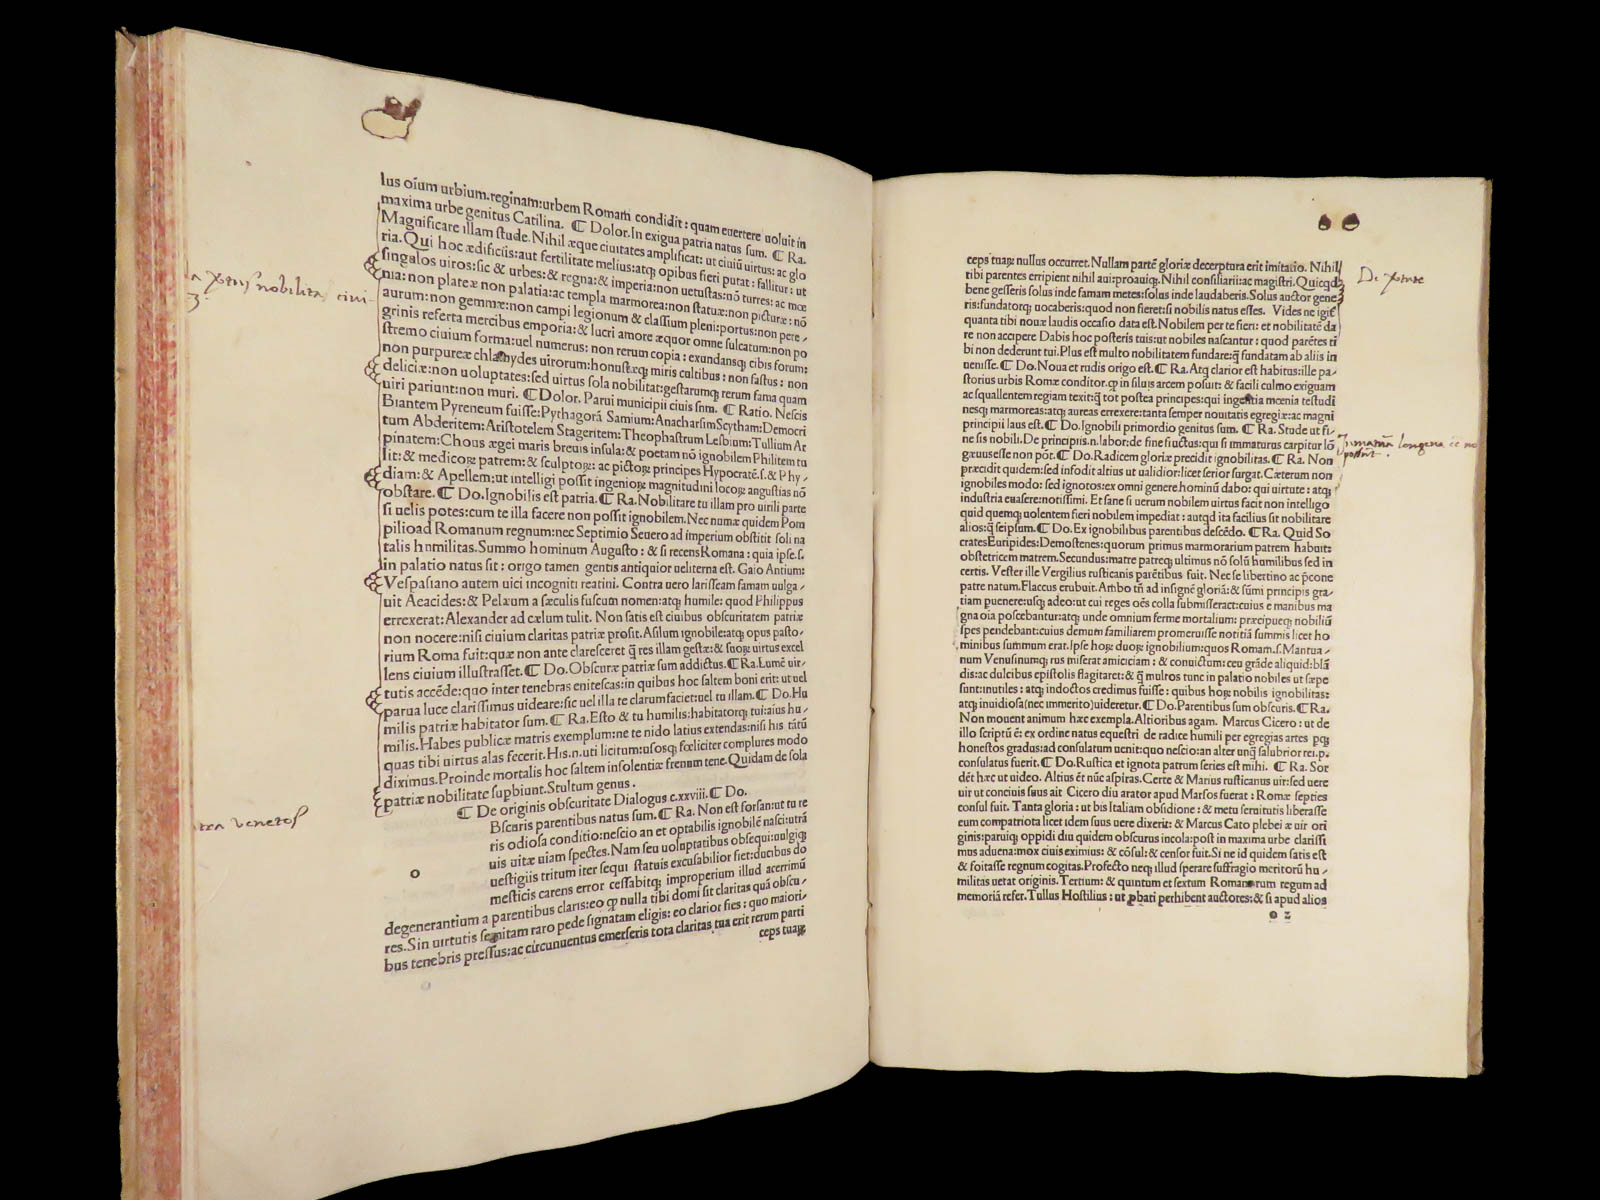 lus oīum urbium.reginam:urbem Romam condidit: quam euertere uoluit in
maxima urbe genitus Catilina. ¶ Dolor.In exigua patria natus sum. ¶ Ra.
Magnificare illam stude.Nihil æque ciuitates amplificat: ut ciuiū uirtus: ac glo
ria.Qui hoc ædificiis:aut fertilitate melius:atq; opibus fieri putat: fallitur: ut
singulos uiros:sic & urbes:& regna:& imperia:non uetustas:nō turres: ac mœ
nia: non plateæ non palatia:ac templa marmorea:non statuæ:non picturæ: nō
aurum:non gemmæ:non campi legionum & classium pleni:portus:non pere/
grinis referta mercibus emporia:& lucri amore æquor omne sulcatum:non po
stremo ciuium forma:uel numerus: non rerum copia: exundansq; cibis forum:
non purpureæ chlamydes uirorum:honustæq; miris cultibus: non fastus: non
deliciæ:non uoluptates:sed uirtus sola nobilitat:gestarumq; rerum fama quam
uiri pariunt:non muri. ¶ Dolor. Parui municipii ciuis sum. ¶ Ratio. Nescis
Biantem Pyreneum fuisse:Pythagorā Samium:Anacharsim Scytham:Democri
tum Abderitem:Aristotelem Stageritem:Theophastrum Lesbium:Tullium Ar
pinatem:Chous ægei maris breuis insula:& poetam nō ignobilem Philitem tu
lit:& medicoꝝ patrem:& sculptoꝝ: ac pictoꝝ principes Hypocratē.s.& Phy/
diam:& Apellem:ut intelligi possit ingenioꝝ magnitudini locoꝝ angustias nō
obstare. ¶ Do.Ignobilis est patria. ¶ Ra.Nobilitare tu illam pro uirili parte
si uelis potes:cum te illa facere non possit ignobilem.Nec numæ quidem Pom
pilio ad Romanum regnum:nec Septimio Seuero ad imperium obstitit soli na
talis humilitas.Summo hominum Augusto: & si recens Romana: quia ipse.s.
in palatio natus sit: origo tamen gentis antiquior ueliterna est. Gaio Antium:
Vespasiano autem uici incogniti reatini. Contra uero larisseam famam uulga/
uit Aeacides:& Pelæum a sæculis fuscum nomen:atq; humile: quod Philippus
errexerat: Alexander ad cælum tulit. Non satis est ciuibus obscuritatem patriæ
non nocere:nisi ciuium claritas patriæ prosit.Asilum ignobile:atq; opus pasto/
rium Roma fuit:quæ non ante claresceret q̃ res illam gestæ:& suoꝝ uirtus excel
lens ciuium illustrasset.¶ Do.Obscuræ patriæ sum addictus.¶ Ra.Lumē uir/
tutis accēde:quo inter tenebras enitescas:in quibus hoc saltem boni erit: ut uel
parua luce clarissimus uideare:sic uel illa te clarum faciet:uel tu illam.¶ Do.Hu
milis patriæ habitator sum.¶ Ra.Esto & tu humilis:habitatorq; tui:aius hu/
milis.Habes publicæ matris exemplum:ne te nido latius extendas:nisi his tātū
quas tibi uirtus alas fecerit.His.n.uti licitum:usosq; fœliciter complures modo
diximus.Proinde mortalis hoc saltem insolentiæ frenum tene.Quidam de sola
patriæ nobilitate supbiunt.Stultum genus.
¶ De originis obscuritate Dialogus c.xxviii.¶ Do.
Bscuris parentibus natus sum.¶ Ra.Non est forsan:ut tu re
ris odiosa conditio:nescio an et optabilis ignobilē nasci:utrā
uis uitæ uiam spectes.Nam seu uoluptatibus obsequi:uulgiq;
uestigiis tritum iter sequi statuis excusabilior fiet:ducibus do
o
mesticis carens error cessabitq; improperium illud acerrimū
degenerantium a parentibus claris:eo qɔ nulla tibi domi sit claritas quā obscu/
res.Sin uirtutis semitam raro pede signatam eligis: eo clarior fies: quo maiori/
bus tenebris pressus:ac circunuentus emerseris tota claritas tua erit rerum parti
ceps tuaꝝ
uirtus nobilitat ciui
contra venetos
ceps tuaꝝ nullus occurret.Nullam partē gloriæ decerptura erit imitatio. Nihil
tibi parentes erripient nihil aui:proauiq;.Nihil consiliarii:ac magistri.Quicqd
bene gesseris solus inde famam metes:solus inde laudaberis.Solus auctor gene
ris:fundatorq; uocaberis:quod non fieret:si nobilis natus esses. Vides ne igit̃
quanta tibi nouæ laudis occasio data est.Nobilem per te fieri: et nobilitatē da
re non accipere Dabis hoc posteris tuis:ut nobiles nascantur: quod parētes ti
bi non dederunt tui.Plus est multo nobilitatem fundare:q̃ fundatam ab aliis in
uenisse. ¶ Do.Noua et rudis origo est.¶ Ra.Atq; clarior est habitus:ille pa/
storius urbis Romæ conditor.qɔ in siluis arcem posuit: & facili culmo exiguam
ac squallentem regiam texit:q̃ tot postea principes:qui ingentia mœnia testudi
nesq; marmoreas:atq; aureas errexere:tanta semper nouitatis egregiæ:ac magni
principii laus est.¶ Do.Ignobili primordio genitus sum. ¶ Ra.Stude ut fi/
ne sis nobili.De principiis.n.labor:de fine fructus:qui si immaturus carpitur lō
gæuus esse non pōt.¶ Do.Radicem gloriæ precidit ignobilitas.¶ Ra. Non
præcidit quidem:sed infodit altius ut ualidior:licet serior surgat.Cæterum non
ignobiles modo: sed ignotos:ex omni genere hominū dabo: qui uirtute: atq;
industria euasere:notissimi. Et sane si uerum nobilem uirtus facit non intelligo
quid quemq; uolentem fieri nobilem impediat: autqd ita facilius sit nobilitare
alios:q̃ seipsum.¶ Do.Ex ignobilibus parentibus descēdo. ¶ Ra. Quid So
crates Euripides:Demostenes:quorum primus marmorarium patrem habuit:
obstetricem matrem.Secundus:matre patreq; ultimus nō solū humilibus sed in
certis. Vester ille Vergilius rusticanis parētibus fuit. Nec se libertino ac p̄cone
patre natum.Flaccus erubuit.Ambo tn̄ ad insignē gloriā:& sūmi principis gra/
tiam puenere:usq; adeo:ut cui reges oēs colla submisserāt:cuius e manibus ma
gna oīa poscebantur:atq; unde omnium ferme mortalium: præcipueq; nobiliū
spes pendebant:cuius demum familiarem promeruisse notitiā summis licet ho
minibus summum erat.Ipse hoꝝ duoꝝ ignobilium:quos Romam.s.Mantua/
num Venusinumq; rus miserat amicitiam: & conuictum:ceu grāde aliquid:blā
dis:ac dulcibus epistolis flagitaret:& q̃ multos tunc in palatio nobiles ut sæpe
sunt:inutiles: atq; indoctos credimus fuisse: quibus hoꝝ nobilis ignobilitas:
atq; inuidiosa(nec immerito)uideretur.¶ Do.Parentibus sum obscuris.¶ Ra.
Non mouent animum hæc exempla.Altioribus agam. Marcus Cicero: ut de
illo scriptū ē: ex ordine natus equestri de radice humili per egregias artes pq;
honestos gradus:ad consulatum uenit:quo nescio:an alter unq̃ salubrior rei.p.
consulatus fuerit. ¶ Do.Rustica et ignota patrum series est mihi. ¶ Ra. Sor
dēt hæc ut uideo. Altius ēt nūc aspiras.Certe & Marius rusticanus uir:sed uere
uir ut conciuis suus ait Cicero diu arator apud Marsos fuerat: Romæ septies
consul fuit. Tanta gloria: ut bis Italiam obsidione: & metu seruitutis liberasse
eum compatriota licet idem suus uere dixerit: & Marcus Cato plebeiæ uir ori
ginis:paruiq; oppidi diu quidem obscurus incola:post in maxima urbe clarissi
mus aduena:mox ciuis eximius: & cōsul:& censor fuit.Si ne id quidem satis est
& foitasse regnum cogitas.Profecto neq; illud sperare suffragio meritorū hu/
militas uetat originis.Tertium: & quintum et sextum Romanorum regum ad
memoriā refer.Tullus Hostilius: ut ꝓbati perhibent auctores:& si apud alios
o 2
De
Immatura longeua ēē nō
possunt.